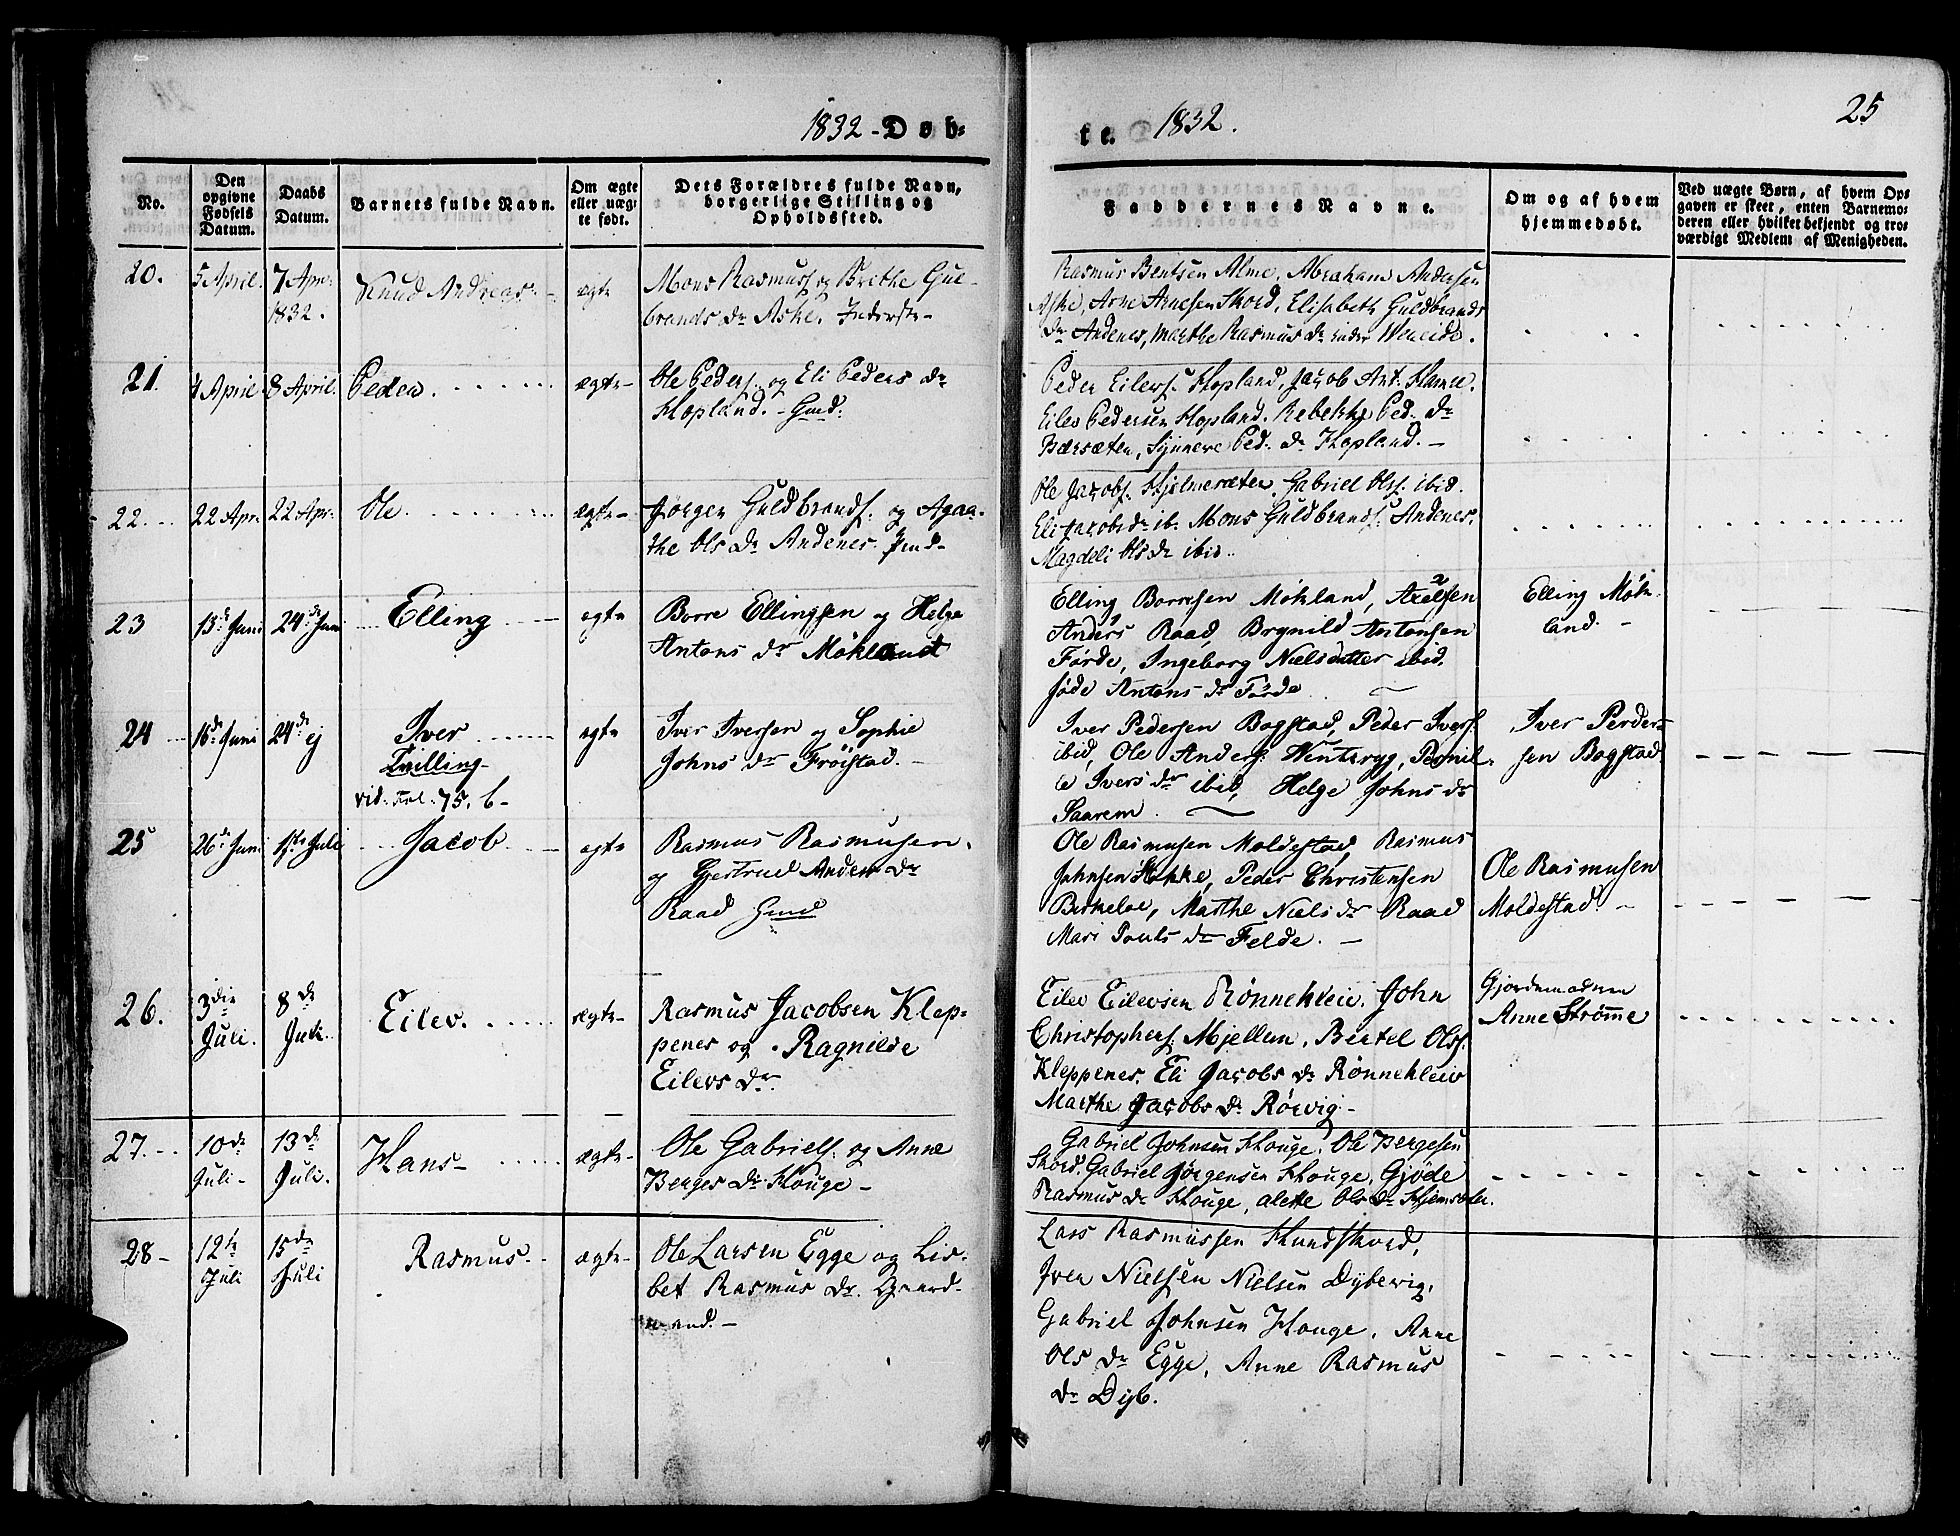 1832 - Døb-
te. 1832.
25
No.
Den opgivne Fødsels Datum.
Daabs Datum.
Barnets fulde Navn.
Om ægte eller uægte født.
Dets Forældres fulde Navn, borgerlige Stilling og Opholdssted.
Faddernes Navne.
Om og af hvem hjemmedøbt.
Ved uægte Børn, af hvem Op-
gaven er skeet, enten Barnemo-
deren eller hvilket bekjendt og tro-
værdigt Medlem af Menigheden.
20. 5 April. 7 Apr: 1832. Knud Andreas ægte
Mons Rasmuss. og Brithe Gul-
brands Dr Aske. Inderste -
Rasmus Bentsen Alme, Abraham Andersen
Aske, Arne Arnesen Skord, Elisabeth Guldbrands
Dr Andenes, Marthe Rasmus Dr
21. 7 April 8 April. Peder ægte
Ole Peders. og Eli Peders Dr
Hopland. - Gmd:
Peder Eilers. Hopland, Jacob Ant. Hamre.
Eilev Pedersen Hopland. Rebekke Ped. Dr
Bærsæten, Synneve Ped. Dr Hopland. -
22. 22 Apr: 22 Apr: Ole. ægte
Jørgen Guldbrands. og Agaa-
the Ols Dr Andenes.
Ole Jacobs. Hjelmesæter. Gabriel Olss. ibid.
Eli Jacobs Dr ib. Mons Guldbrands. Andenes.
Magdeli Ols Dr ibid.
23 13de Juni 24de Juni Elling ægte
Borre Ellingsen og Helge
Antons Dr Mökland
Elling Borresen Mökland, Axelsen
Anders Raad, Brynild Antonsen
Förde, Ingeborg Nielsdatter ibid.
Jöde Antons Dr Förde
Elling Mök-
land. -
24 16de Juni 24de ej Iver
Tvilling
vid. Fol. 75. b - ægte
Iver Iversen og Sophie
Johns Dr Fröistad. -
Iver Pedersen Bogstad, Peder Ivers.
ibid, Ole Anders. Wenteryg, Pernil-
le Ivers Dr ibid, Helge Johns Dr
Saarem.
Iver Peder-
sen Bogstad
25 26de Juni 1ste Juli Jacob ægte
Rasmus Rasmusen.
og Gjertrud Anders Dr
Raad Gmd
Ole Rasmusen Moldestad, Rasmus
Johnsen Hokke, Peder Christensen
Birkeloe, Marthe Niels Dr Raad
Mari Pouls Dr Felde. -
Ole Rasmusen
Moldestad. -
26. 3die Juli. 8de Juli. Eilev. ægte
Rasmus Jacobsen Klep-
penes og Ragnilde
Eilevs Dr.
Eilev Eilevsen Rønnekleiv. John
Christophers. Mjellem. Bertel Olss.
Kleppenes. Eli Jacobs Dr Rønnekleiv
Marthe Jacobs Dr Rørvig -
Gjordemoderen
Anne Strømme
27. 10de Juli - 13de Juli. Hans ægte
Ole Gabriels. og Anne
Berges Dr Houge -
Gabriel Johnsen Houge. Ole Bergesen
Skord. Gabriel Jørgensen Houge, Gjøde
Rasmus Dr Houge, Alette Ols Dr
28 - 12te Juli 15de Juli Rasmus ægte
Ole Larsen Egge og Lis-
bet Rasmus Dr. Gaard-
mand. -
Lars Rasmussen Hundskord,
Iver Nielsen Nielsen Dybevig,
Gabriel Johnsen Houge. Anne
Ols Dr Egge, Anne Rasmus
Dr Dyb.